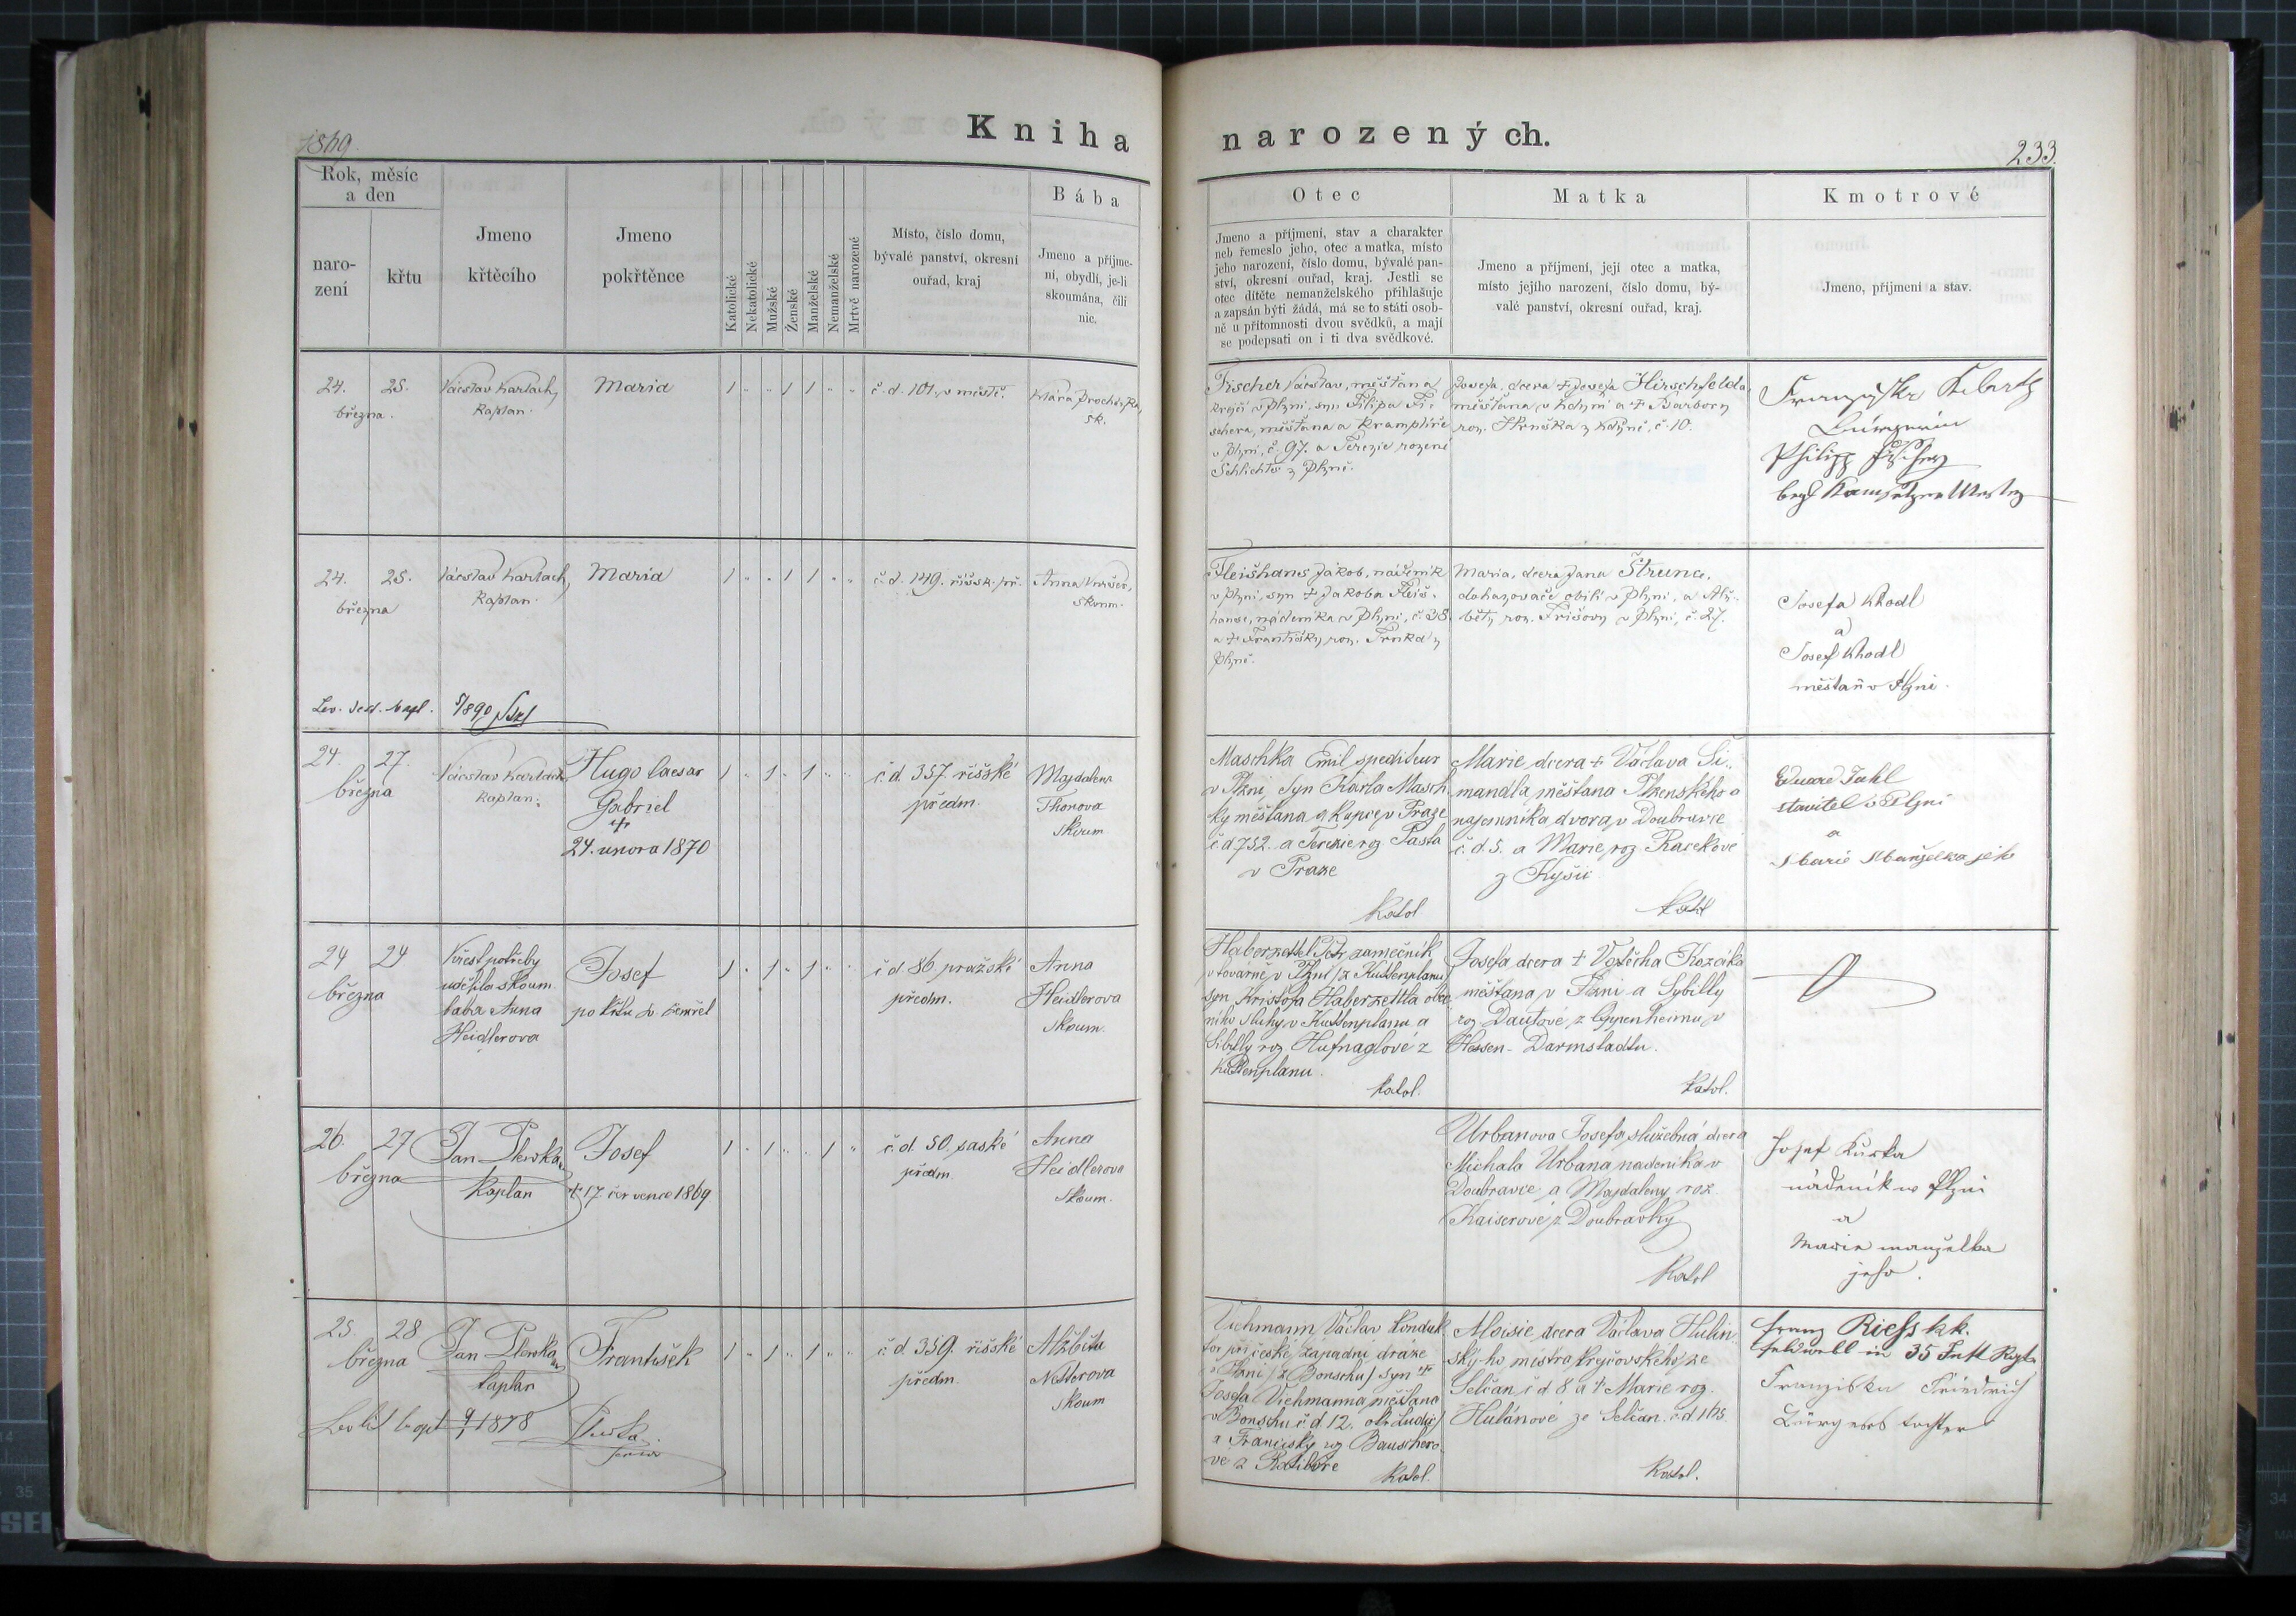 1869.
Kniha narozených.
233.
Rok, měsíc
a den
naro-
zení
křtu
Jmeno
křtěcího
Jmeno
pokřtěnce
Katolické
Nekatolické
Mužské
Ženské
Manželské
Nemanželské
Mrtvě narozené
Místo, číslo domu,
bývalé panství, okresní
ouřad, kraj
Bába
Jmeno a příjme-
ní, obydlí, je-li
skoumána, čili
nic.
Otec
Jmeno a příjmení, stav a charakter
neb řemeslo jeho, otec a matka, místo
jeho narození, číslo domu, bývalé pan-
ství, okresní ouřad, kraj. Jestli se
otec dítěte nemanželského přihlašuje
a zapsán býti žádá, má se to státi osob-
ně u přítomnosti dvou svědků, a mají
se podepsati on i ti dva svědkové.
Matka
Jmeno a příjmení, její otec a matka,
místo jejího narození, číslo domu, bý-
valé panství, okresní ouřad, kraj.
Kmotrové
Jmeno, příjmení a stav.
24. 25.
března.
Václav Karlach,
kaplan.
Maria
1 " " 1 1 " "
č. d. 101. v městě.
Klára Procház-
sk.
Fischer Václav, měšťan a
krejčí v Plzni, syn Filipa Fi-
schera, měšťana a kramplíře
v Plzni, č. 97. a Terezie rozené
z Plzně.
Josefa, dcera + Josefa Hirschfelda,
měšťana v Kdyni a + Barbory
roz. Hruška z Kdyně, č. 10.
Philipp Fischer
24. 25.
března
Václav Karlach,
kaplan.
Maria
1 " " 1 1 " "
č. d. 149. říšsk. př.
Anna
skoum.
Fleišhans Jakob, nádeník
v Plzni, syn + Jakoba Fleiš-
hanse, nádeníka v Plzni, č. 38.
a + Františky roz. Trnka z
Plzně.
Maria, dcera Jana Štrunc,
dohazovače obilí v Plzni, a Alž-
běty roz. Frišovy v Plzni, č. 27.
Josefa Khodl
a
Josef Khodl
měšťan v Plzni.
1890
24. 27.
března
Václav Karlach
kaplan.
Hugo Caesar
Gabriel
+
24. února 1870
1 " 1 " 1 " "
č. d. 357. říšské
předm.
Magdalena
Thonova
skoum
Maschka Emil spediteur
v Plzni, syn Karla Masch
ky měšťana a kupce v Praze
č. d 752. a Terezie roz Pasta
v Praze
Katol
Marie, dcera + Václava Si-
mandla, měšťana Plzenského a
najemníka dvora, v Doubravce
č. d. 5. a Marie, roz Racekové
z Kyšic
Katol
Eduard Jahl
stavitel v Plzni
a
Marie Manželka jeho
24 24
března
Křest potřeby
udělila skoum
bába Anna
Heidlerova
Josef
po křtu sv. zemřel
1 " 1 " 1 " "
č. d 86 pražské
předm.
Anna
Heidlerova
skoum.
Haberzettl Petr, zamečník
v tovarně v Plzni / z Kuttenplanu /
syn Kristofa Haberzettla obec
ního sluhy v Kuttenplanu a
Sibilly roz Hufnaglové z
Kuttenplanu.
Katol.
Josefa dcera + Vojtěcha Kozáka
měšťana v Plzni a Sybilly
roz Dautové, z Oppenheimu v
Hessen-Darmstadtu.
Katol.
26. 27
března
Jan Plevka
Kaplan
Josef
+ 17 července 1869
1 " 1 " " 1 "
č. d. 50. saské
předm.
Anna
Heidlerova
skoum.
Urbanova Josefa služebná dcera
Michala Urbana nadeníka v
Doubravce, a Magdaleny roz
Kaiserové z Doubravky
Katol
Josef Kůrka
nádeník w Plzni
a
Marie manželka
jeho.
25 28
března
Jan Plevka
kaplan
František
1 " 1 " 1 " "
č. d 359. říšské
předm.
Alžběta
Netterova
skoum
1878
Plevka
Vichmann Václav konduk
tor při české západní dráze
v Plzni / z Bonschu / syn +
Josefa Vichmanna měšťana
v Bonschu č. d 12.
a Francisky roz Bauschero
vé z Ratiboře
Katol.
Aloisie, dcera Václava Hulin
ského mistra krejčovského ze
Selčan č d 8 a + Marie roz.
Hulánové ze Selčan. č. d. 165.
Katol.
Franz Riess kk.
Feldwebl in 35 Inft Rgte
Franziska Friedrich
Bürgers tochter